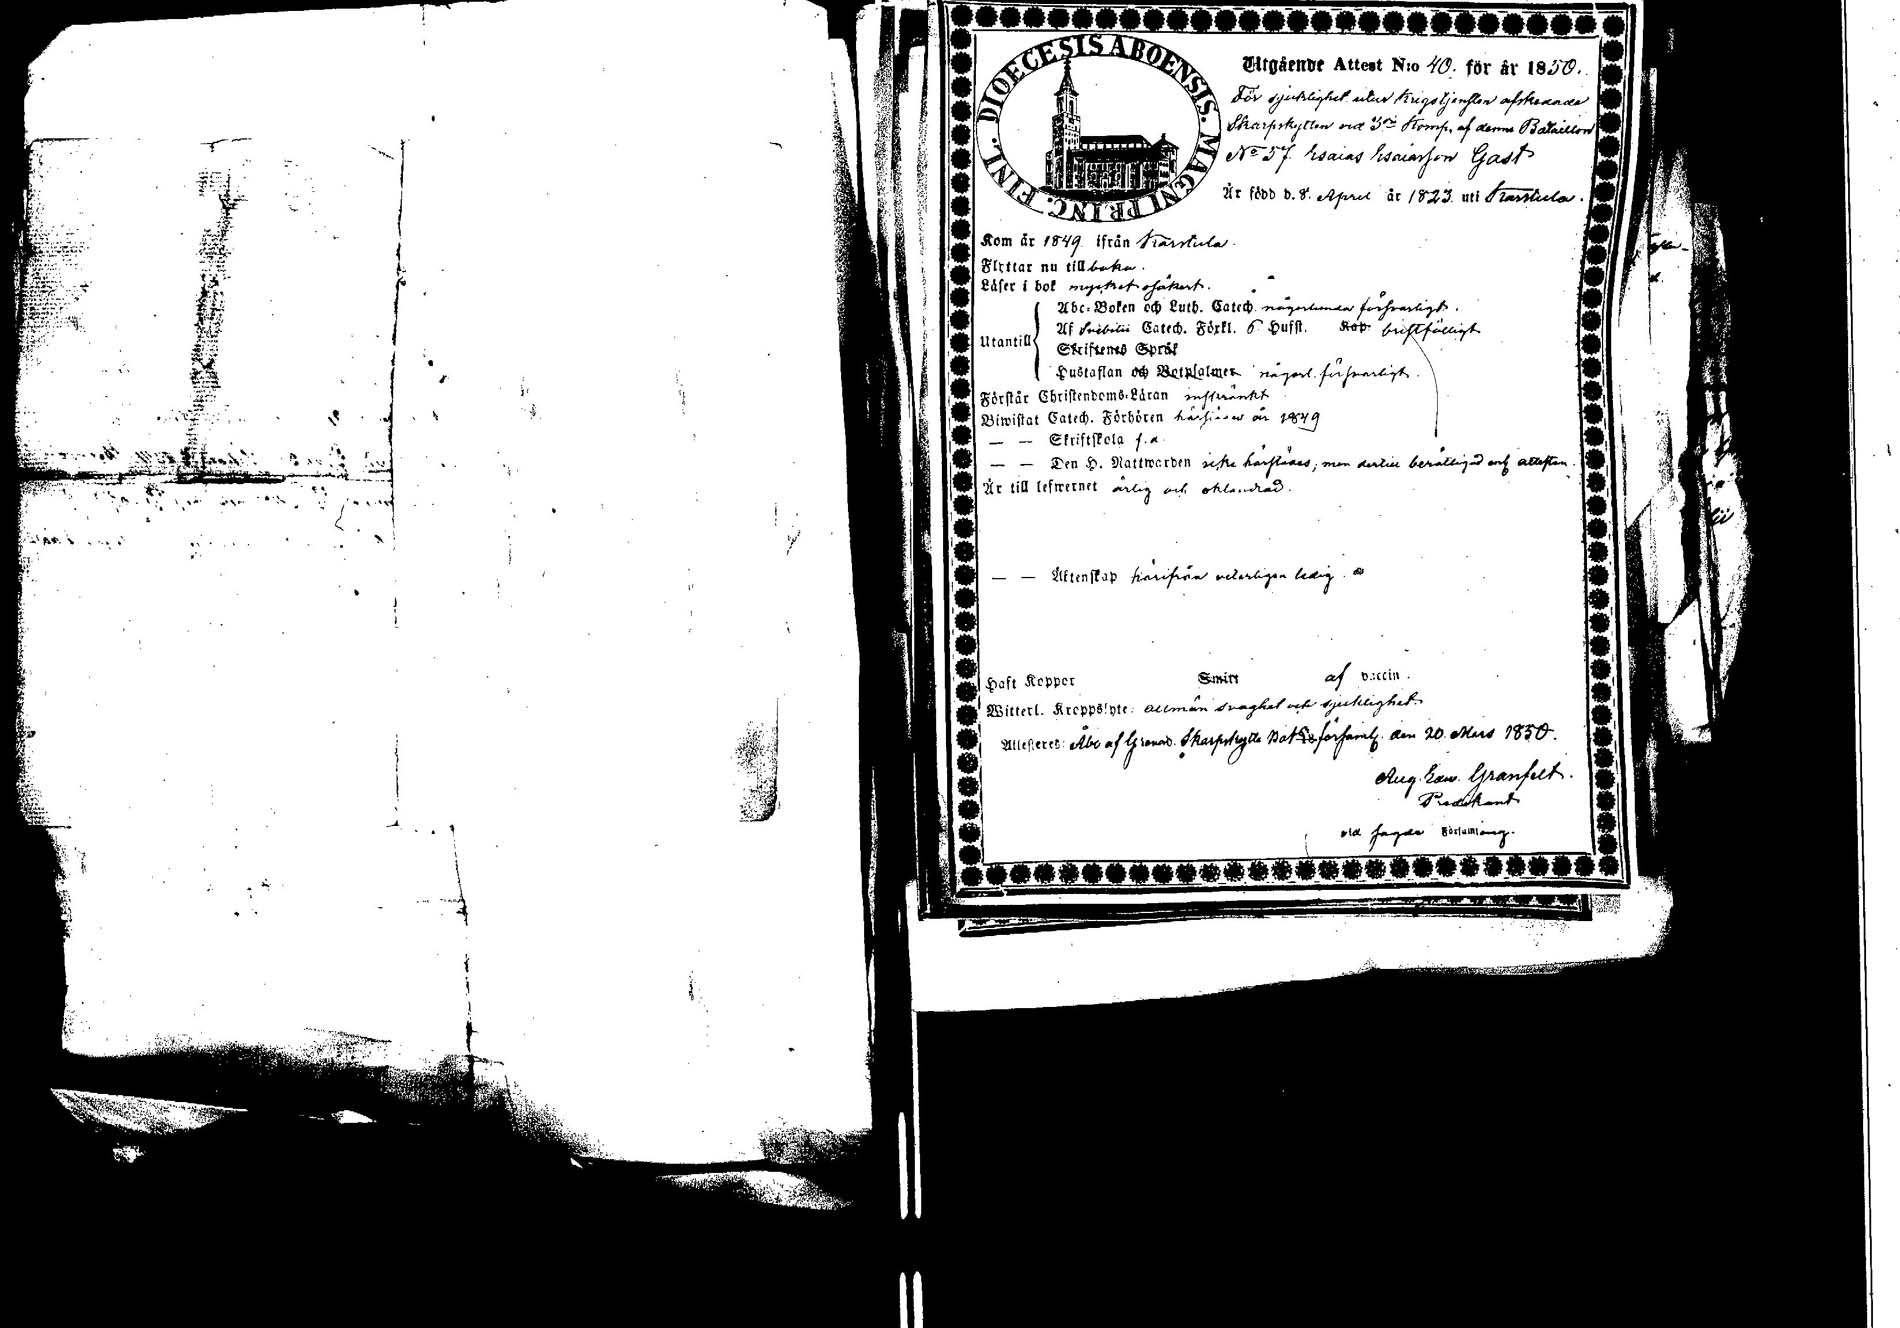 DIOECESIS ABOENSIS. MAGNI PRINC. FINL.
Utgående Attest N:o 40. för år 1850.
För sjuklighet utur krigstjensten afskedade
Skarpskytten vid 3dje Komp. af denne Bataillon
No 57. Esaias Esaiasson Gast
Är född d. 8. April år 1823. uti Karstula.
Kom år 1849. ifrån Karstula.
Flyttar nu tillbaka.
Läser i bok mycket osäkert.
Utantill
Abc-Boken och Luth. Catech. någorlunda försvarligt.
Af Svebilii Catech. Förkl. 6 Hufst. Kap bristfälligt
Skriftenes Språk
Hustaflan och Botpsalmer någorl. försvarligt.
Förstår Christendoms-Läran inskränkt
Biwistat Catech. Förhören härstädes år 1849
— — Skriftskola s. å.
— — Den H. Nattwarden icke härstädes, men dertill berättigad enl. attesten.
Är till lefwernet ärlig och oklandrad.
— — Äktenskap härifrån veterligen ledig.
Haft Koppor Smitt af vaccin.
Witterl. Kroppslyte: allmän svaghet och sjuklighet.
Attesteres: Åbo af Grenad. Skarpskytte Bat:s församl. den 20. Mars 1850.
Aug. Edw. Granfelt.
Predikant
vid sagde Församling.